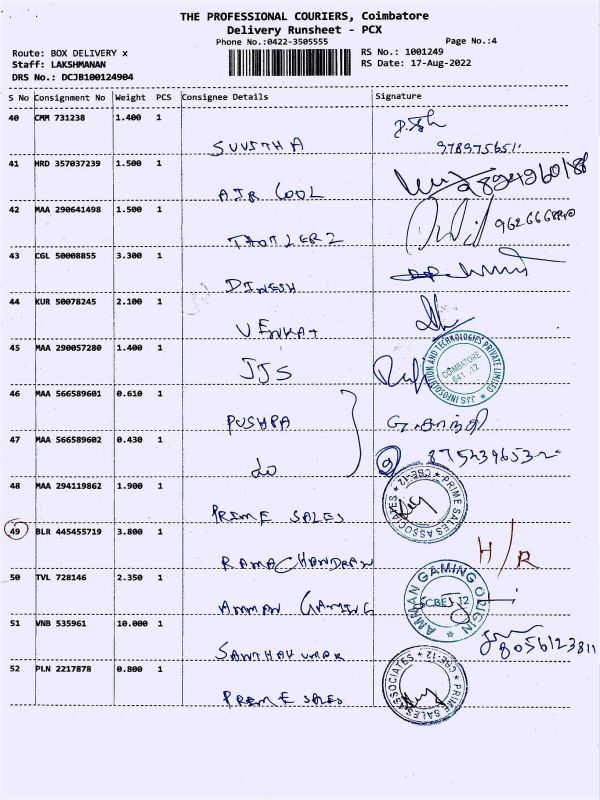 THE PROFESSIONAL COURIERS, Coimbatore
Delivery Runsheet - PCX
Phone No.:0422-3505555
Page No.:4
Route: BOX DELIVERY x
RS No.: 1001249
Staff: LAKSHMANAN
RS Date: 17-Aug-2022
DRS No.: DCJB100124904
S No Consignment No Weight PCS Consignee Details Signature
40 CMM 731238 1.400 1
SUVITHA 978975651
41 HRD 357037239 1.500 1
AIR COOL
42 MAA 290641498 1.500 1
9626668840
43 CGL 50008855 3.300 1
DINESH
44 KUR 50078245 2.100 1
VENKAT
45 MAA 290057280 1.400 1
JJS
JJS INFOSOLUTION AND TECHNOLOGIES PRIVATE LIMITED
COIMBATORE
641 12
46 MAA 566589601 0.610 1
PUSHPA
47 MAA 566589602 0.430 1
do 8754396532
48 MAA 294119862 1.900 1
PRIME SALES
PRIME SALES ASSOCIATES * CBE-12 *
49 BLR 445455719 3.800 1
RAMACHANDRAN H/R
50 TVL 728146 2.350 1
AMMAN GAMING
AMMAN GAMING ORIGIN
51 VNB 535961 10.000 1
8056123811
52 PLN 2217878 0.800 1
PRIME SALES
PRIME SALES ASSOCIATES * CBE-12 *